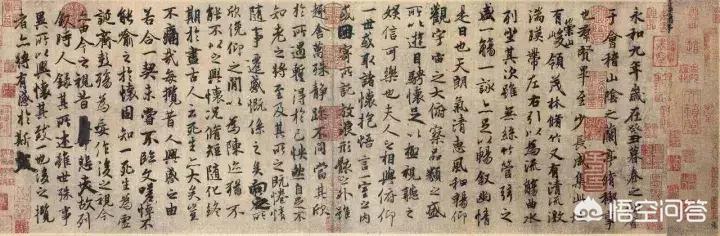 永和九年歲在癸丑暮春之初會
于會稽山陰之蘭亭脩稧事
也羣賢畢至少長咸集此地
有崇山峻領茂林脩竹又有清流激
湍暎帶左右引以為流觴曲水
列坐其次雖無絲竹管弦之
盛一觴一詠亦足以暢叙幽情
是日也天朗氣清惠風和暢仰
觀宇宙之大俯察品類之盛
所以遊目騁懷足以極視聽之
娛信可樂也夫人之相與俯仰
一世或取諸懷抱悟言一室之內
或因寄所託放浪形骸之外雖
趣舍萬殊靜躁不同當其欣
於所遇暫得於己怏然自足不
知老之將至及其所之既惓情
隨事遷感慨係之矣向之所
欣俛仰之閒以為陳迹猶不
能不以之興懷況脩短隨化終
期於盡古人云死生亦大矣豈
不痛哉每攬昔人興感之由
若合一契未嘗不臨文嗟悼不
能喻之於懷固知一死生為虛
誕齊彭殤為妄作後之視今
亦由今之視昔悲夫故列
敘時人錄其所述雖世殊事
異所以興懷其致一也後之攬
者亦將有感於斯文
悟空问答